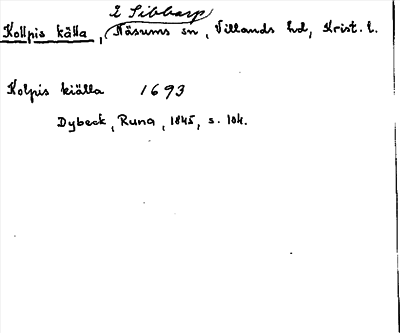 i Sibbarp
Kollpis källa, Näsums sn, Villands hd, Krist. l.
Kolpis kiälla 1693
Dybeck, Runa, 1845, s. 104.